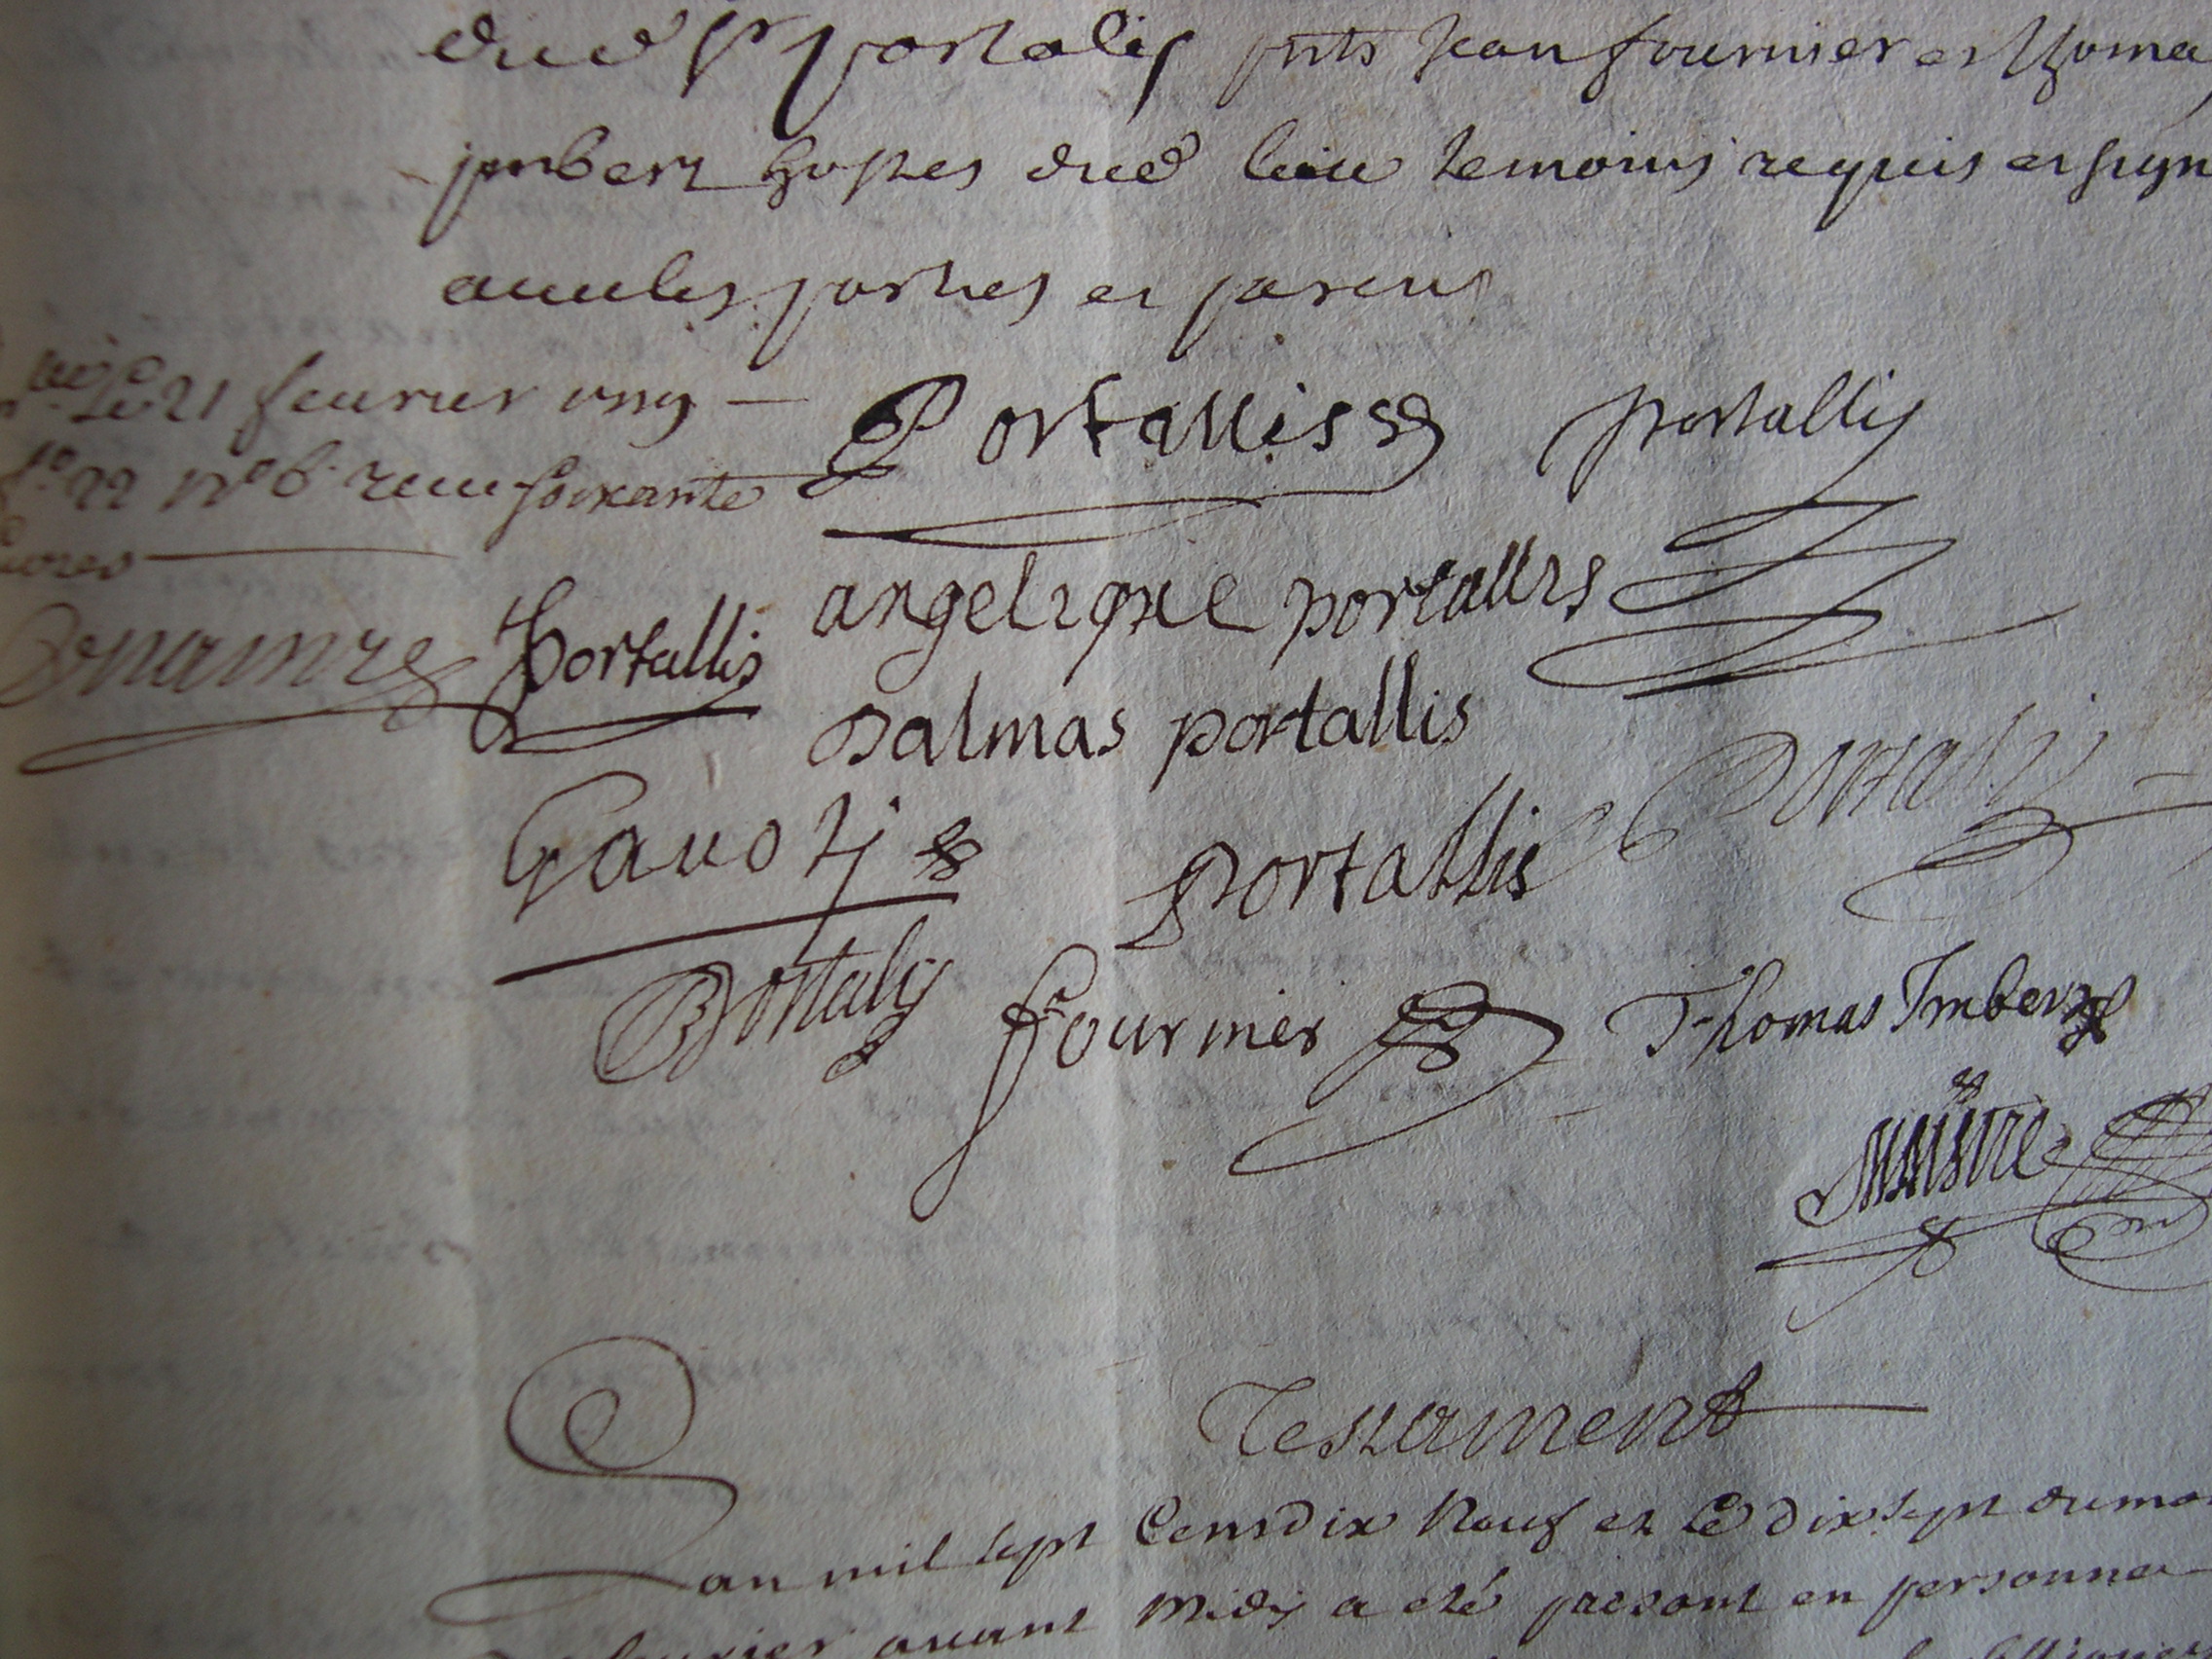 dud Sr portalis pnts Jean fournier et Thomas
imbert hostes dud lieu temoins requis et sign
aveules parties et parens
21 fevrier 1719 —
fo 22 no 6 receu soixante
Portalliss portallis
angelique portallis
Portallis
dalmas portallis
Portalis
Gavoty
portallis
Portaly fournier Thomas Imbert
Maistre
Testament
Lan mil sept Cens dix Neuf et Le dix sept du mois
fevrier avant Midy a eté present en personne